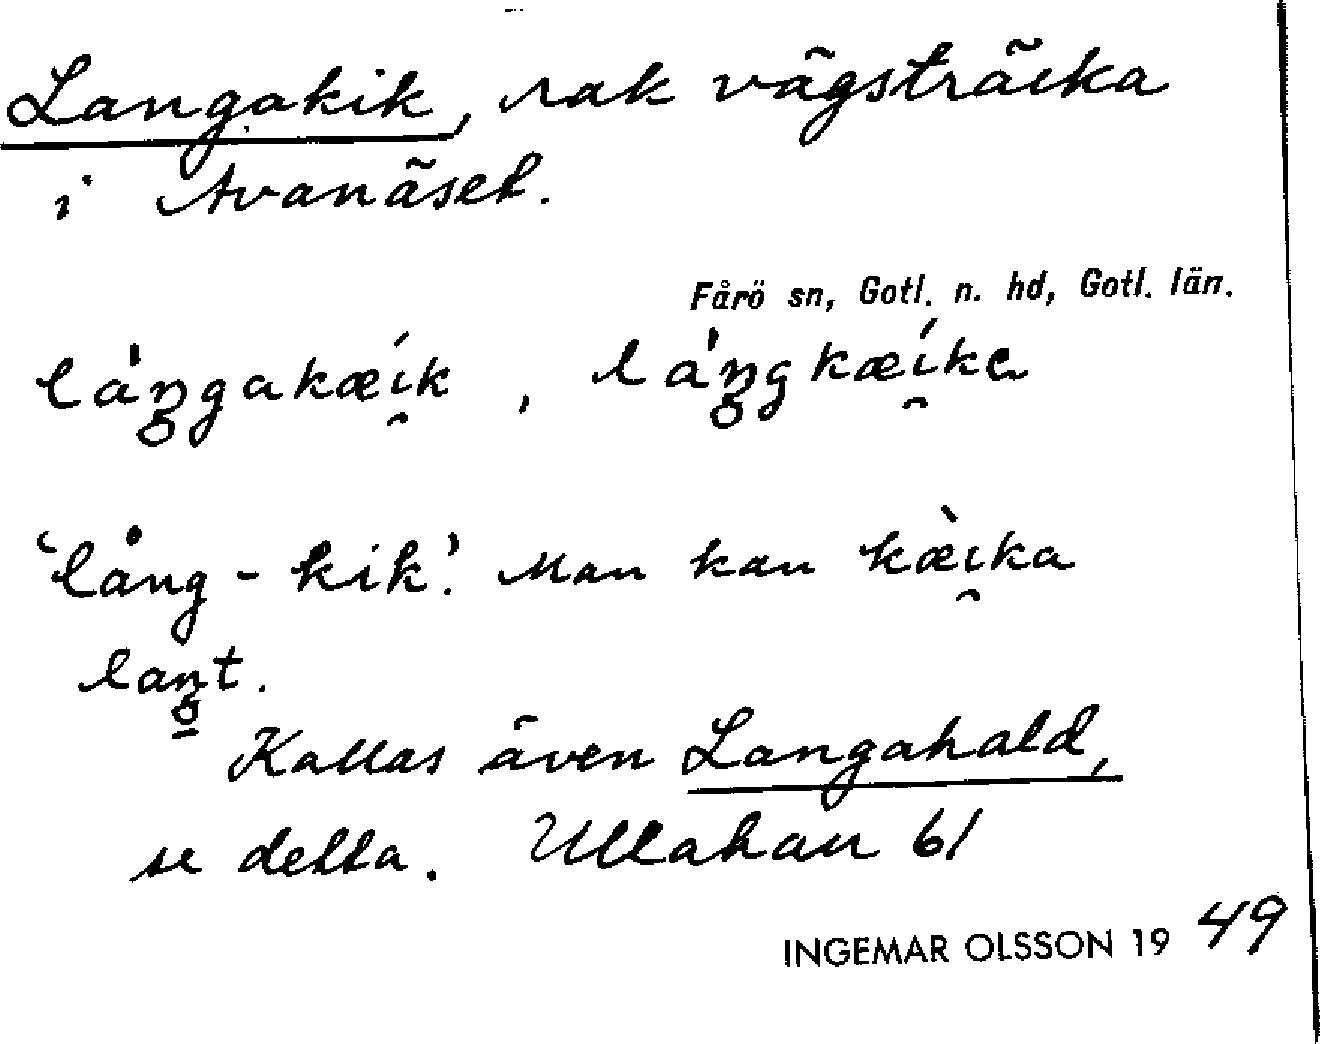 Langakik, rak vägsträcka
i Avanäset.
Fårö sn, Gotl. n. hd, Gotl. län.
láŋgakæi̯k, láŋgkæi̯ka
'lång-kik'. Man kan kæ̀i̯ka
laŋt.
Kallas även Langahald,
se detta. Ullahau 61
INGEMAR OLSSON 1949